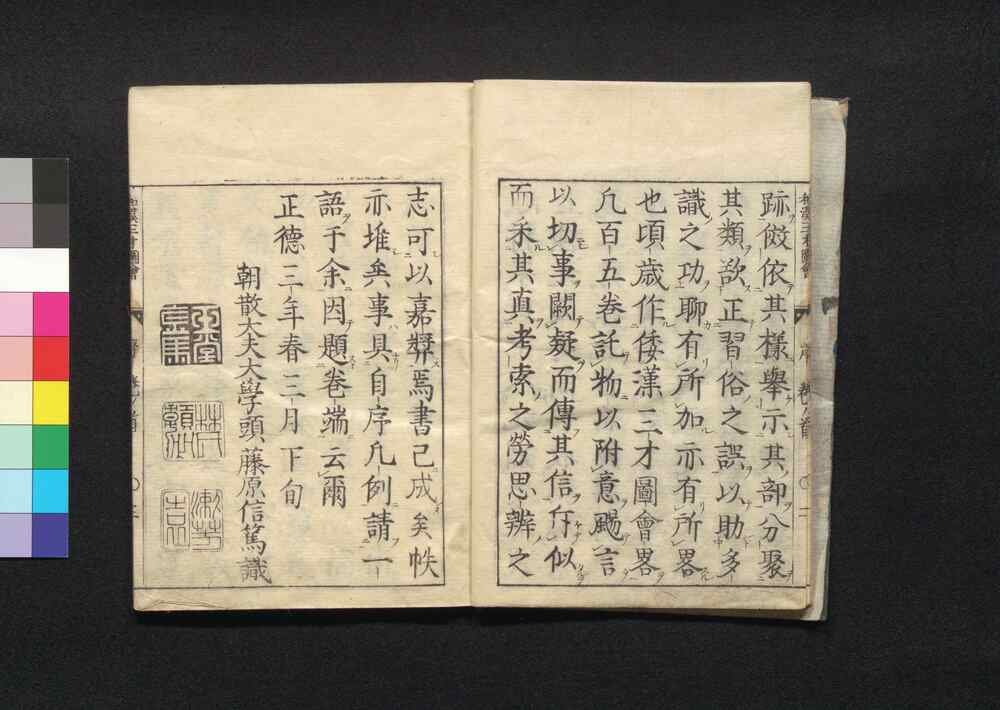 跡倣依其様舉示其部分聚
其類欲正習俗之誤以助多
識之功聊有所加示有所畧
也頃歳作倭漢三才圖會畧
凡百五卷託物以附意颺言
以切事闕疑而傳其信斥似
而采其真考索之勞思辨之
志可以嘉奬焉書已成矣帙
亦堆矣事具自序凡例請一
語于余因題卷端云爾
正德三年春三月下旬
朝散大夫大學頭藤原信篤識